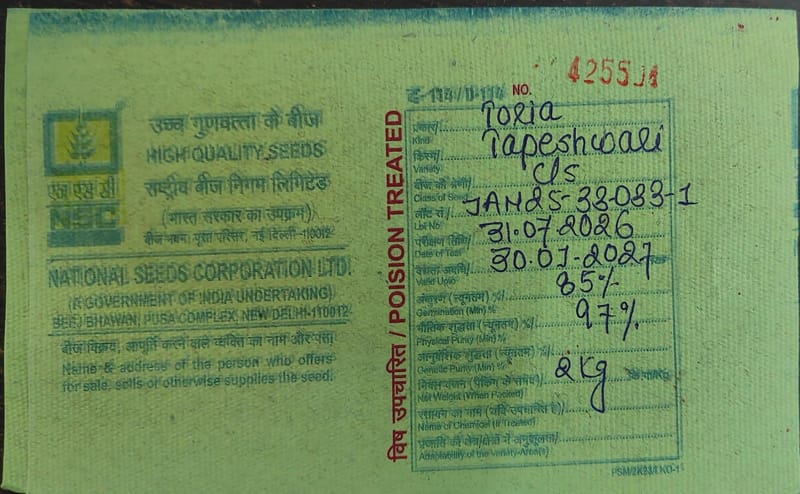 उच्च गुणवत्ता के बीज
HIGH QUALITY SEEDS
राष्ट्रीय बीज निगम लिमिटेड
(भारत सरकार का उपक्रम)
बीज भवन, पूसा परिसर, नई दिल्ली-110012
एन एस सी
NSC
NATIONAL SEEDS CORPORATION LTD.
(A GOVERNMENT OF INDIA UNDERTAKING)
BEEJ BHAWAN, PUSA COMPLEX, NEW DELHI-110012
बीज विक्रय, आपूर्ति करने वाले व्यक्ति का नाम और पता
Name & address of the person who offers
for sale, sells or otherwise supplies the seed.
विष उपचारित / POISION TREATED
द-114 / D-114 NO. 425504
प्रकार Toria
Kind
किस्म Tapeshwari
Variety
बीज की श्रेणी C/S
Class of Seed
लॉट सं. JAN25-33-083-1
Lot No.
परीक्षण तिथि 31.07.2026
Date of Test
वैधता अवधि 30.01.2027
Valid Upto
अंकुरण (न्यूनतम) %
85%
Germination (Min) %
भौतिक शुद्धता (न्यूनतम) % 97%
Physical Purity (Min) %
आनुवंशिक शुद्धता (न्यूनतम) %
Genetic Purity (Min) %
निवल वजन (पैकिंग के समय) 2kg कि.ग्रा/Kg.
Net Weight (When Packed)
रसायन का नाम (यदि उपचारित है)
Name of Chemical (If Treated)
प्रजाति की क्षेत्र/क्षेत्रों में अनुकूलता
Adaptability of the Variety-Area(s)